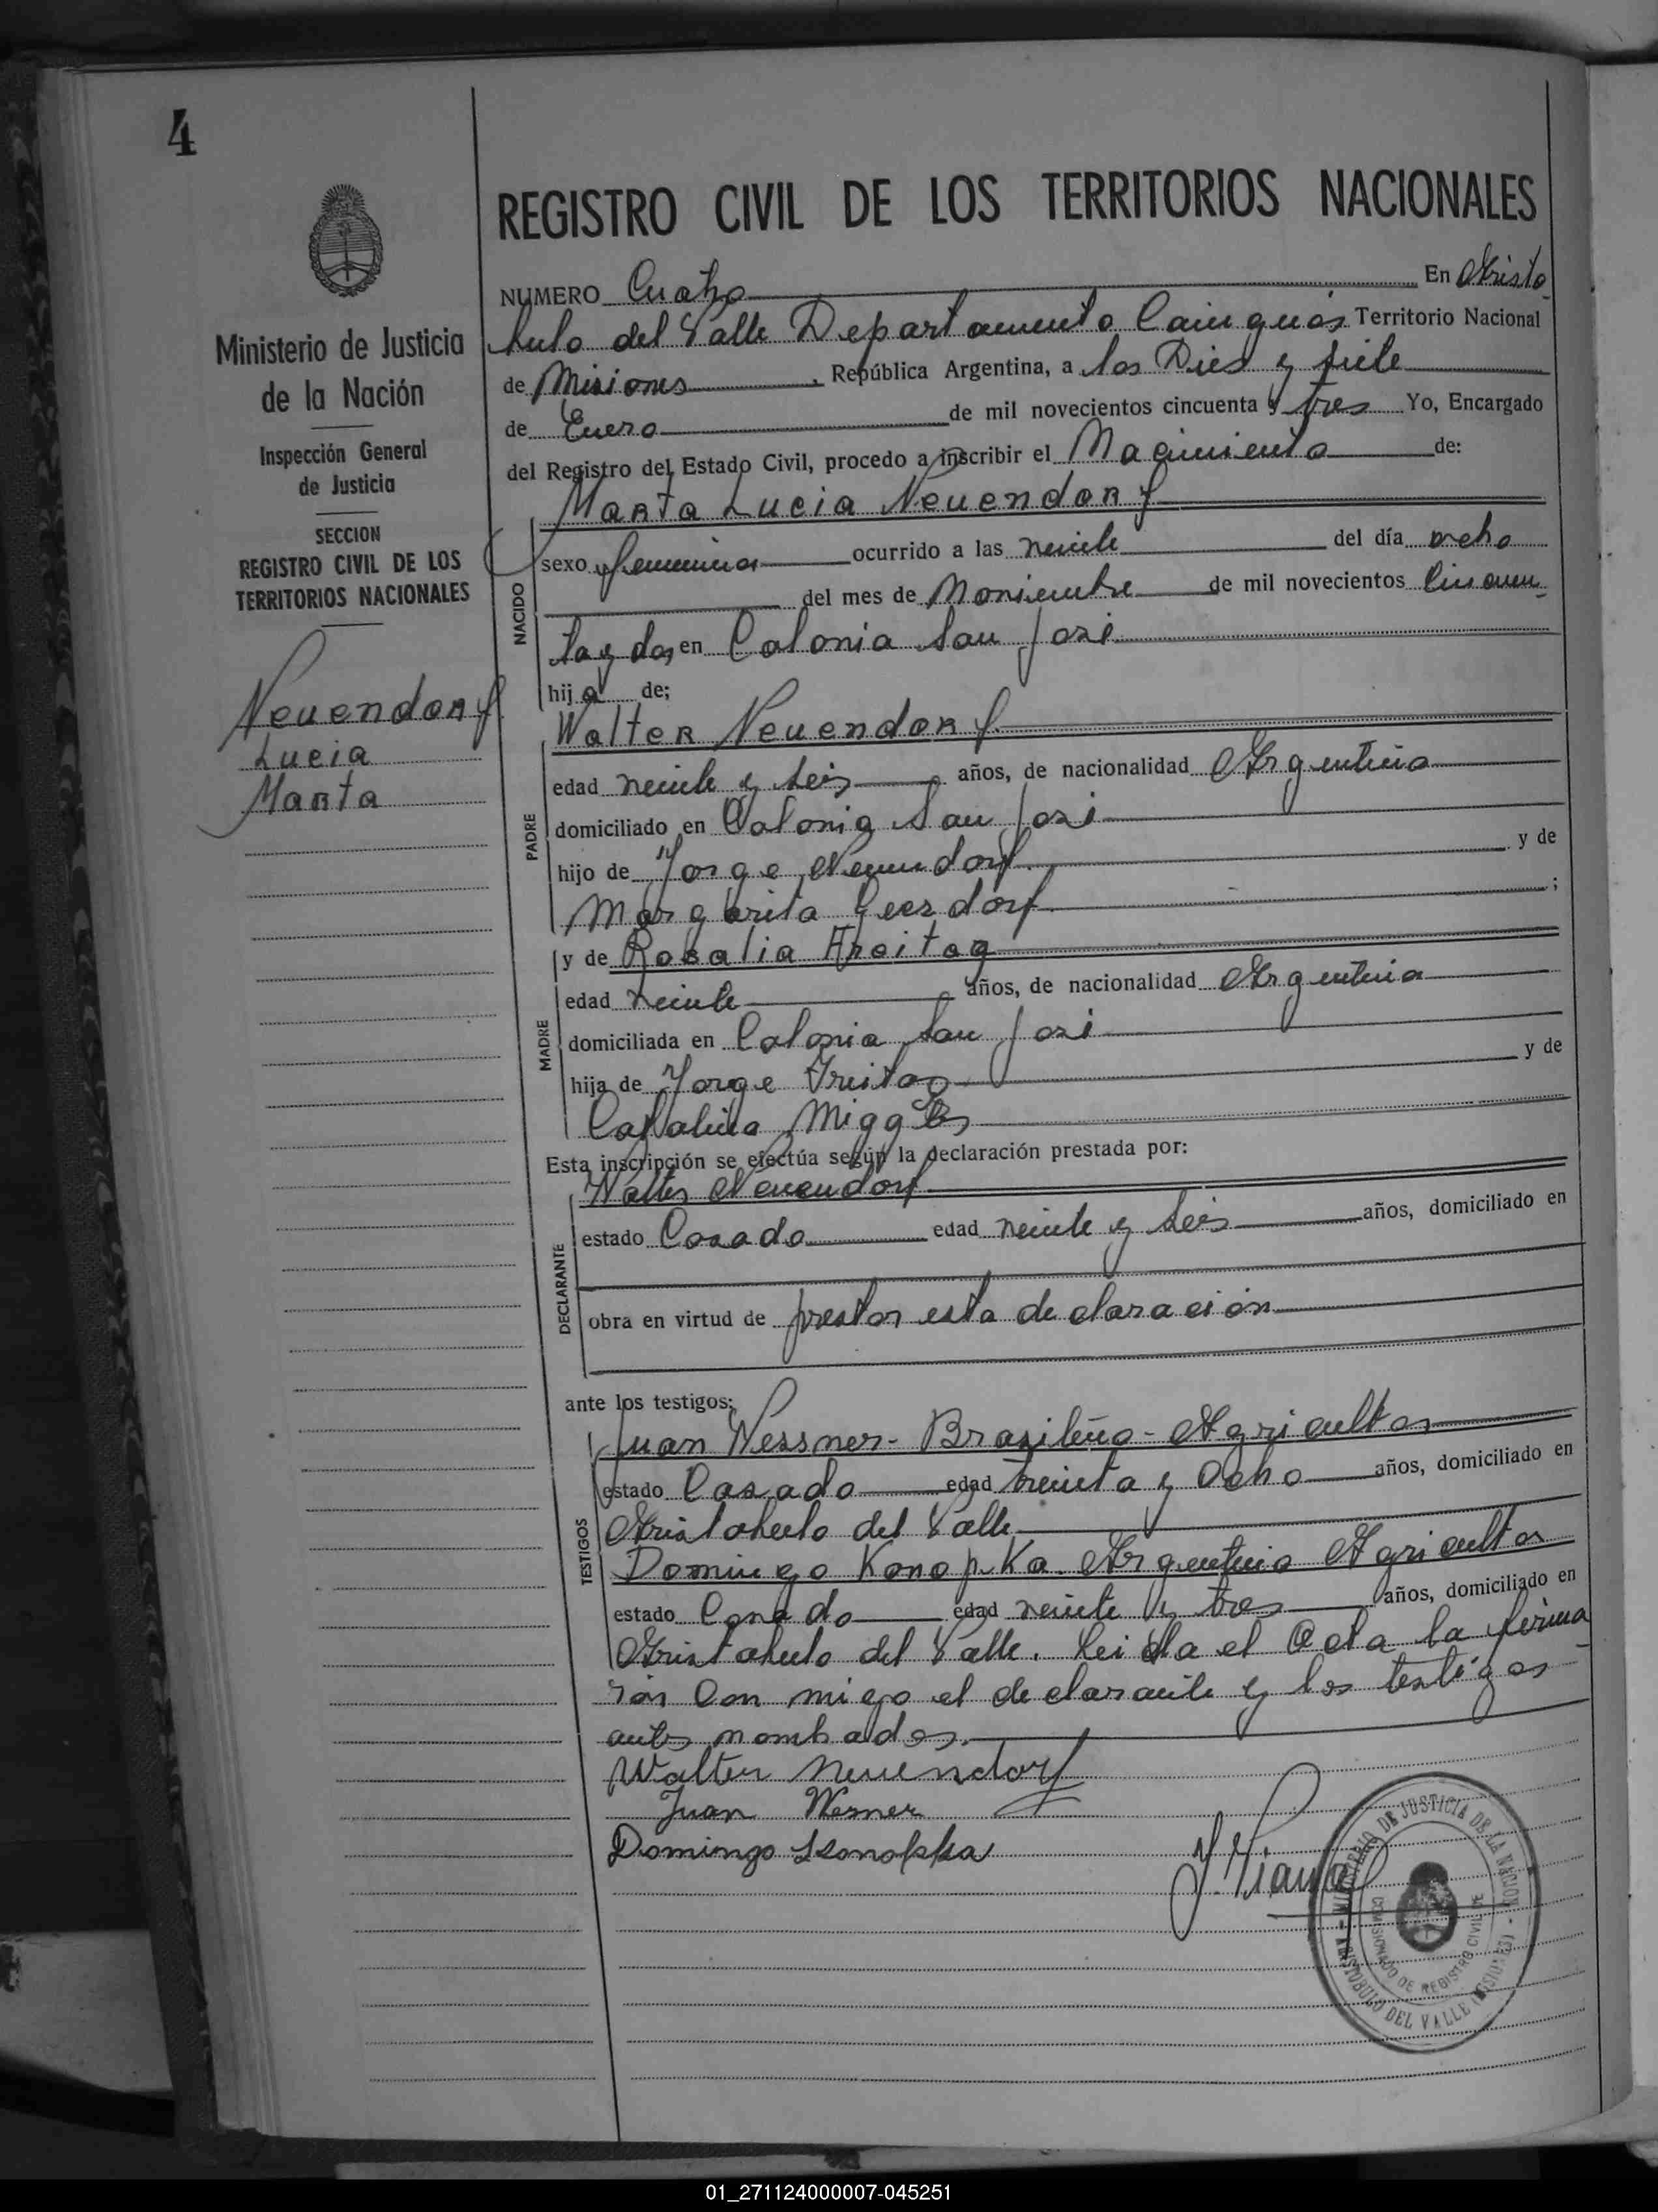 4
REGISTRO CIVIL DE LOS TERRITORIOS NACIONALES
NUMERO Cuatro En Aristo
bulo del Valle Departamento Cainguás Territorio Nacional
de Misiones, República Argentina, a los Diez y siete
de Enero de mil novecientos cincuenta y tres Yo, Encargado
del Registro del Estado Civil, procedo a inscribir el Nacimiento de:
Marta Lucia Neuendorf
sexo femenino ocurrido a las veinte del día ocho
del mes de Noviembre de mil novecientos Cincuen
ta y dos en Colonia San José
hija de;
Walter Neuendorf
edad veinte y seis años, de nacionalidad Argentina
domiciliado en Colonia San José
hijo de Jorge Neuendorf y de
Margarita Geerdorf ;
y de Rosalia Freitag
edad veinte años, de nacionalidad Argentina
domiciliada en Colonia San José
hija de Jorge Freitag y de
Catalina
Esta inscripción se efectúa según la declaración prestada por:
Walter Neuendorf
estado Casado edad veinte y seis años, domiciliado en
obra en virtud de prestar esta declaración
ante los testigos:
Juan Wessner - Brasileño - Agricultor
estado Casado edad treinta y Ocho años, domiciliado en
Aristobulo del Valle
Domingo Konopka Argentino Agricultor
estado Casado edad veinte y tres años, domiciliado en
Aristobulo del Valle. Leida el Acta la firma
rón con migo el declarante y los testigos
antes nombados.
Walter Neuendorf
Juan Wesner
Domingo Konopka
NACIDO
PADRE
MADRE
DECLARANTE
TESTIGOS
Ministerio de Justicia
de la Nación
Inspección General
de Justicia
SECCION
REGISTRO CIVIL DE LOS
TERRITORIOS NACIONALES
Neuendorf
Lucia
Marta
MINISTERIO DE JUSTICIA DE LA NACION - ARISTOBULO DEL VALLE (MISIONES) -
COMISIONADO DE REGISTRO CIVIL DE
01_271124000007-045251